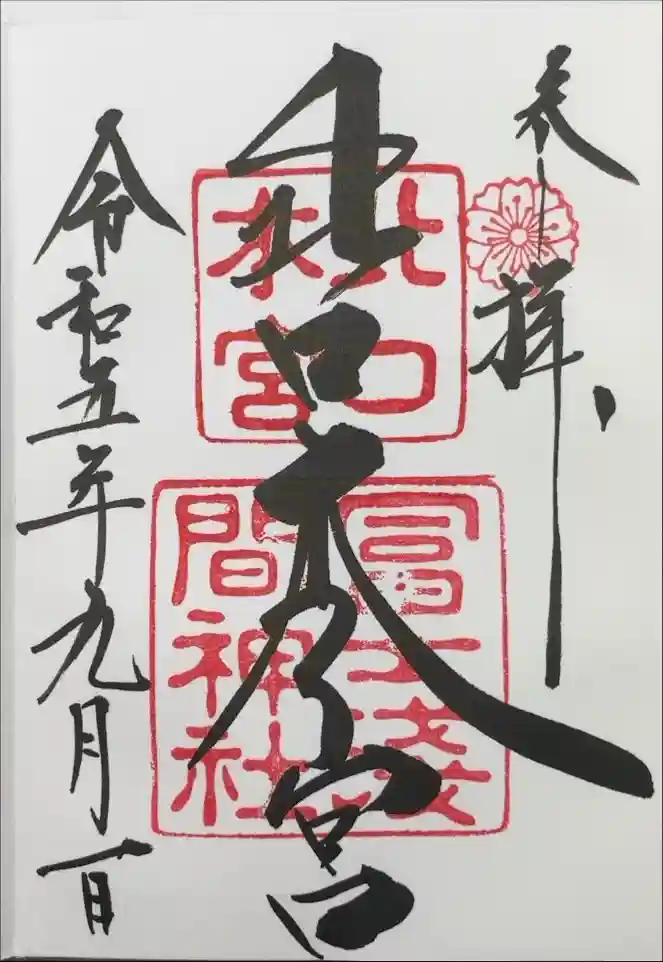 奉拝
北口本宮
北口
本宮
冨士淺
間神社
令和五年九月一日